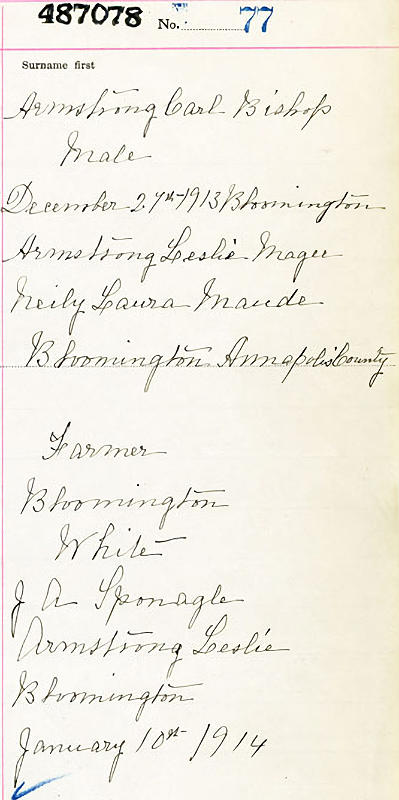 487078 No. 77
Surname first
Armstrong Carl Bishop
Male
December 27th 1913 Bloomington
Armstrong Leslie Magee
Neily Laura Maude
Bloomington Annapolis County
Farmer
Bloomington
White
J A Sponagle
Armstrong Leslie
Bloomington
January 10th 1914